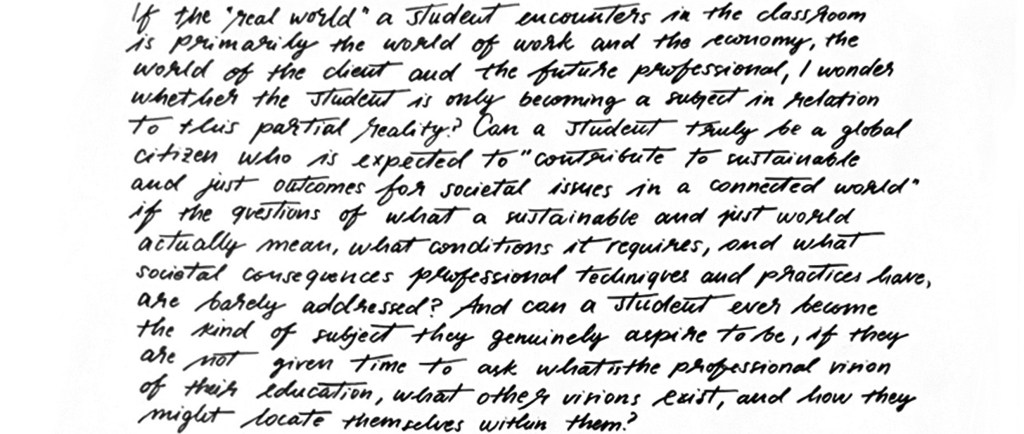 If the "real world" a student encounters in the classroom
is primarily the world of work and the economy, the
world of the client and the future professional, I wonder
whether the student is only becoming a subject in relation
to this partial reality? Can a student truly be a global
citizen who is expected to "contribute to sustainable
and just outcomes for societal issues in a connected world"
if the questions of what a sustainable and just world
actually mean, what conditions it requires, and what
societal consequences professional techniques and practices have,
are barely addressed? And can a student ever become
the kind of subject they genuinely aspire to be, if they
are not given time to ask what is the professional vision
of their education, what other visions exist, and how they
might locate themselves within them?